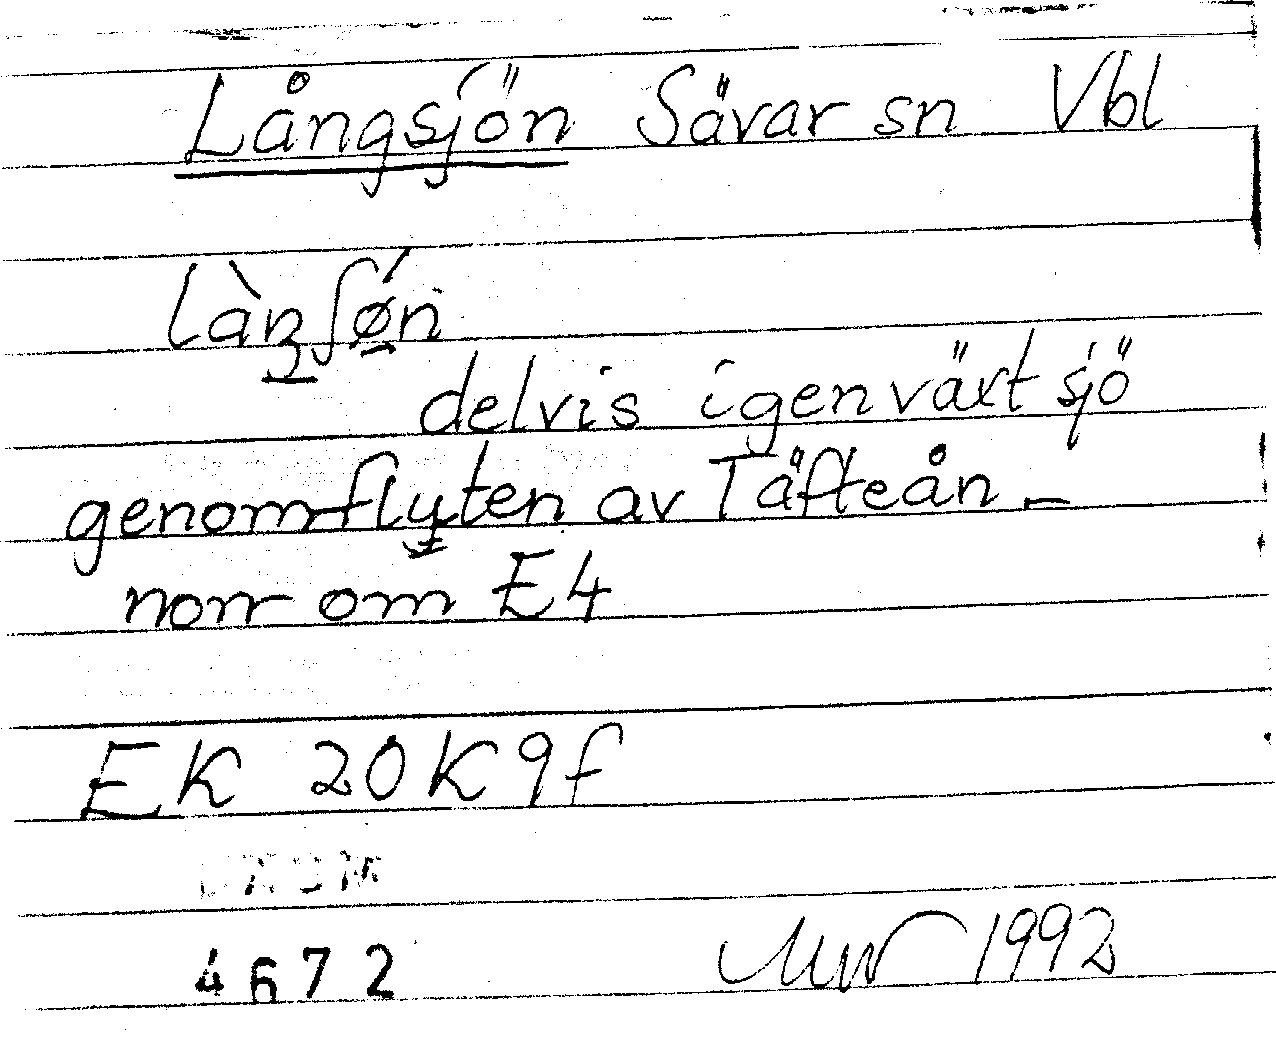 Långsjön Sävar sn Vbl
làŋʃø̀n
delvis igenväxt sjö
genomflyten av Täfteån –
norr om E4
EK 20K 9f
4672 1992